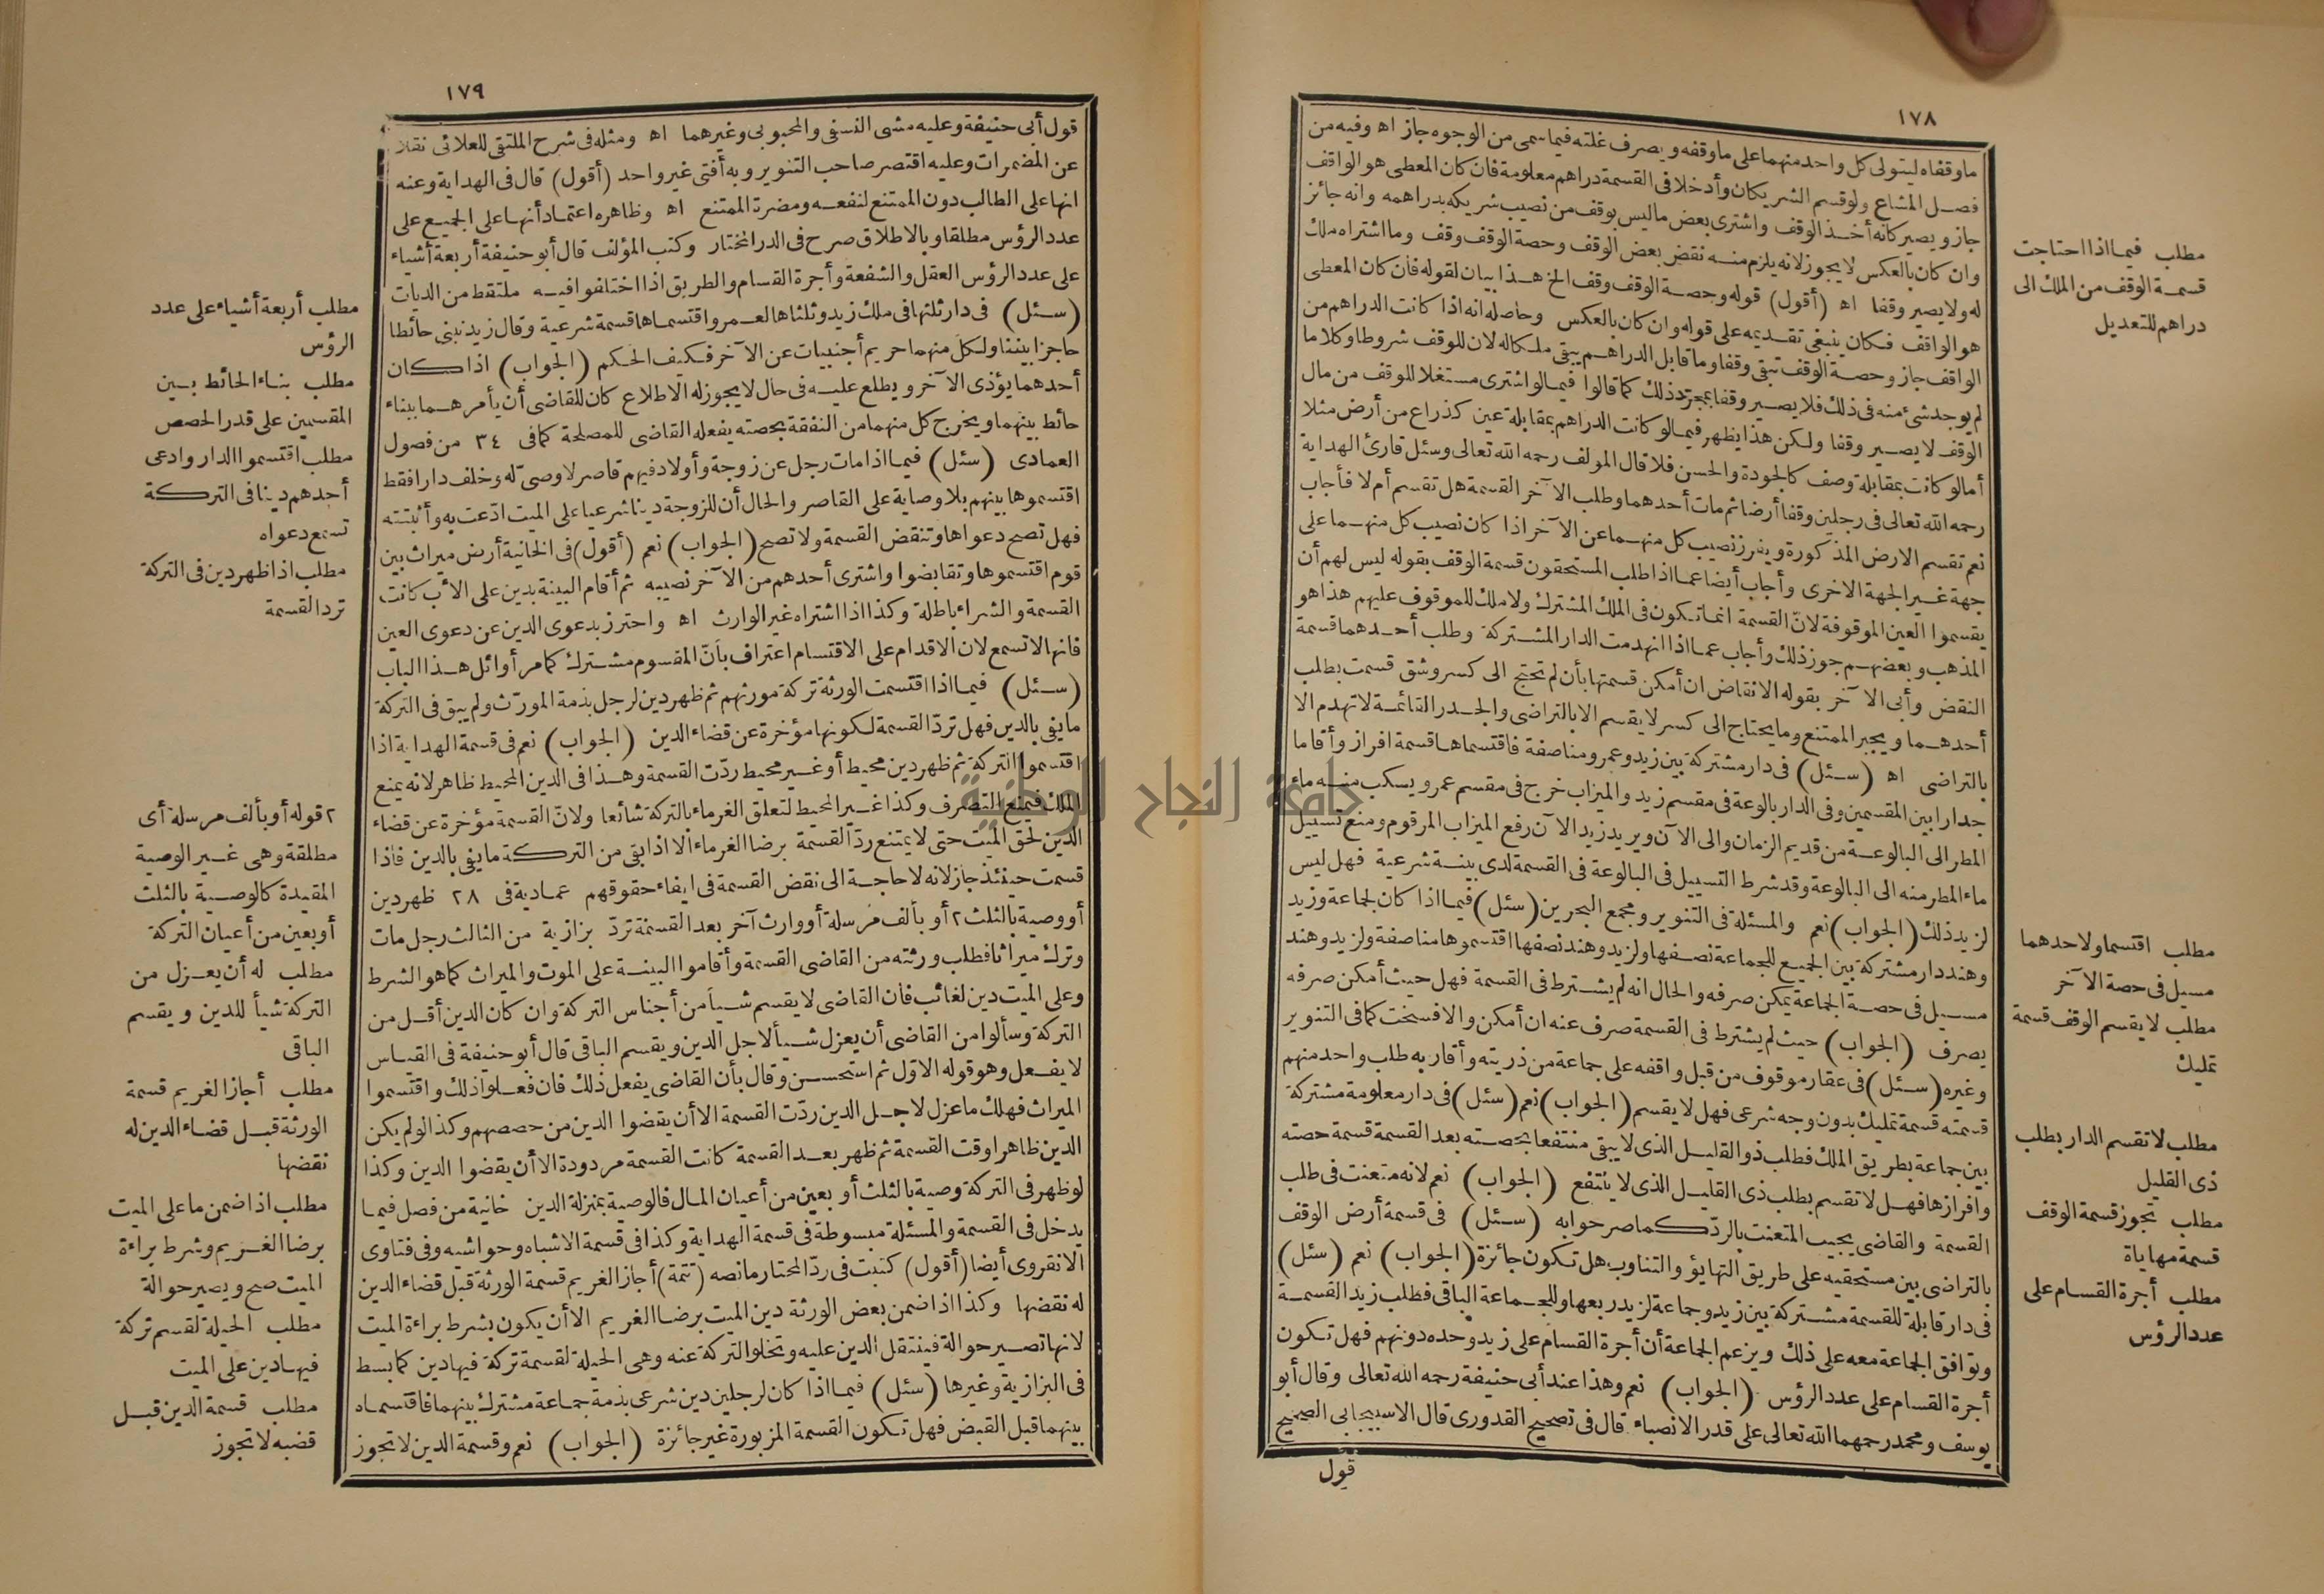 ١٧٨
ما وقفاه ليتولى كل واحد منهما على ما وقفه ويصرف غلته فيما سمى من الوجوه جاز اه وفيه من
فصل المشاع ولو قسم الشريكان وأدخلا فى القسمة دراهم معلومة فان كان المعطى هو الواقف
جاز ويصير كانه أخذ الوقف واشترى بعض ما ليس بوقف من نصيب شريكه بدراهمه وانه جائز
وان كان بالعكس لا يجوز لانه يلزم منه نقض بعض الوقف وحصة الوقف وقف وما اشتراه ملك
له ولا يصير وقفا اه (أقول) قوله وحصة الوقف وقف الخ هذا بيان لقوله فان كان المعطى
هو الواقف فكان ينبغى تقديمه على قوله وان كان بالعكس وحاصله انه اذا كانت الدراهم من
الواقف جاز وحصة الوقف تبقى وقفا وما قابل الدراهم يبقى ملكا له لان للوقف شروطا وكلاما
لم يوجد شئ منه فى ذلك فلا يصير وقفا بمجرّد ذلك كما قالوا فيما لو اشترى مستغلا للوقف من مال
الوقف لا يصير وقفا ولكن هذا يظهر فيما لو كانت الدراهم بمقابلة عين كذراع من أرض مثلا
أما لو كانت بمقابلة وصف كالجودة والحسن فلا قال المؤلف رحمه الله تعالى وسئل قارئ الهداية
رحمه الله تعالى فى رجلين وقفا أرضا ثم مات أحدهما وطلب الآخر القسمة هل تقسم أم لا فأجاب
نعم تقسم الارض المذكورة ويفرز نصيب كل منهما عن الآخر اذا كان نصيب كل منهما على
جهة غير الجهة الاخرى وأجاب أيضا عما اذا طلب المستحقون قسمة الوقف بقوله ليس لهم أن
يقسموا العين الموقوفة لانّ القسمة انما تكون فى الملك المشترك ولا ملك للموقوف عليهم هذا هو
المذهب وبعضهم جوز ذلك وأجاب عما اذا انهدمت الدار المشتركة وطلب أحدهما قسمة
النقض وأبى الآخر بقوله الانقاض ان أمكن قسمتها بأن لم تحتج الى كسر وشق قسمت بطلب
أحدهما ويجبر الممتنع وما يحتاج الى كسر لا يقسم الا بالتراضى والجدر القائمة لا تهدم الا
بالتراضى اه (سئل) فى دار مشتركة بين زيد وعمرو مناصفة فاقتسماها قسمة افراز وأقاما
جدارا بين المقسمين وفى الدار بالوعة فى مقسم زيد والميزاب خرج فى مقسم عمرو ويسكب منه ماء
المطر الى البالوعة من قديم الزمان والى الآن ويريد زيد الآن رفع الميزاب المرقوم ومنع تسييل
ماء المطر منه الى البالوعة وقد شرط التسييل فى البالوعة فى القسمة لدى بينة شرعية فهل ليس
لزيد ذلك (الجواب) نعم والمسئلة فى التنوير ومجمع البحرين (سئل) فيما اذا كان لجماعة وزيد
وهند دار مشتركة بين الجميع للجماعة نصفها ولزيد وهند نصفها اقتسموها مناصفة ولزيد وهند
مسيل فى حصة الجماعة يمكن صرفه والحال انه لم يشترط فى القسمة فهل حيث أمكن صرفه
يصرف (الجواب) حيث لم يشترط فى القسمة صرف عنه ان أمكن والا فسخت كما فى التنوير
وغيره (سئل) فى عقار موقوف من قبل واقفه على جماعة من ذريته وأقاربه طلب واحد منهم
قسمته قسمة تمليك بدون وجه شرعى فهل لا يقسم (الجواب) نعم (سئل) فى دار معلومة مشتركة
بين جماعة بطريق الملك فطلب ذو القليل الذى لا يبقى منتفعا بحصته بعد القسمة قسمة حصته
وافرازها فهل لا تقسم بطلب ذى القليل الذى لا ينتفع (الجواب) نعم لانه متعنت فى طلب
القسمة والقاضى يجيب المتعنت بالردّ كما صرحوا به (سئل) فى قسمة أرض الوقف
بالتراضى بين مستحقيه على طريق التهايؤ والتناوب هل تكون جائزة (الجواب) نعم (سئل)
فى دار قابلة للقسمة مشتركة بين زيد وجماعة لزيد ربعها وللجماعة الباقى فطلب زيد القسمة
وتوافق الجماعة معه على ذلك ويزعم الجماعة أن أجرة القسام على زيد وحده دونهم فهل تكون
أجرة القسام على عدد الرؤس (الجواب) نعم وهذا عند أبى حنيفة رحمه الله تعالى وقال أبو
يوسف ومحمد رحمهما الله تعالى على قدر الانصباء قال فى تصحيح القدورى قال الاسبيجابى الصحيح
قول
مطلب فيما اذا احتاجت
قسمة الوقف من الملك الى
دراهم للتعديل
مطلب اقتسما ولاحدهما
مسيل فى حصة الآخر
مطلب لا يقسم الوقف قسمة
تمليك
مطلب لا تقسم الدار بطلب
ذى القليل
مطلب تجوز قسمة الوقف
قسمة مهايأة
مطلب أجرة القسام على
عدد الرؤس
١٧٩
قول أبى حنيفة وعليه مشى النسفى والمحبوبى وغيرهما اه ومثله فى شرح الملتقى للعلائى نقلا
عن المضمرات وعليه اقتصر صاحب التنوير وبه أفتى غير واحد (أقول) قال فى الهداية وعنه
انها على الطالب دون الممتنع لنفعه ومضرة الممتنع اه وظاهره اعتماد أنها على الجميع على
عدد الرؤس مطلقا وبالاطلاق صرح فى الدر المختار وكتب المؤلف قال أبو حنيفة أربعة أشياء
على عدد الرؤس العقل والشفعة وأجرة القسام والطريق اذا اختلفوا فيه ملتقط من الديات
(سئل) فى دار ثلثها فى ملك زيد وثلثاها لعمرو اقتسماها قسمة شرعية وقال زيد نبنى حائطا
حاجزا بيننا ولكل منهما حريم أجنبيات عن الآخر فكيف الحكم (الجواب) اذا كان
أحدهما يؤذى الآخر ويطلع عليه فى حال لا يجوز له الاطلاع كان للقاضى أن يأمرهما ببناء
حائط بينهما ويخرج كل منهما من النفقة بحصته يفعله القاضى للمصلحة كما فى ٣٤ من فصول
العمادى (سئل) فيما اذا مات رجل عن زوجة وأولاد فيهم قاصر لا وصىّ له وخلف دارا فقط
اقتسموها بينهم بلا وصاية على القاصر والحال أن للزوجة دينا شرعيا على الميت ادّعت به وأثبتته
فهل تصح دعواها وتنقض القسمة ولا تصح (الجواب) نعم (أقول) فى الخانية أرض ميراث بين
قوم اقتسموها وتقابضوا واشترى أحدهم من الآخر نصيبه ثم أقام البينة بدين على الأب كانت
القسمة والشراء باطلة وكذا اذا اشتراه غير الوارث اه واحترز بدعوى الدين عن دعوى العين
فانها لا تسمع لان الاقدام على الاقتسام اعتراف بأنّ المقسوم مشترك كما مر أوائل هذا الباب
(سئل) فيما اذا اقتسمت الورثة تركة مورثهم ثم ظهر دين لرجل بذمة المورّث ولم يبق فى التركة
ما يفى بالدين فهل تردّ القسمة لكونها مؤخرة عن قضاء الدين (الجواب) نعم فى قسمة الهداية اذا
اقتسموا التركة ثم ظهر دين محيط أو غير محيط ردّت القسمة وهذا فى الدين المحيط ظاهر لانه يمنع
الملك فيمنع التصرف وكذا غير المحيط لتعلق الغرماء بالتركة شائعا ولانّ القسمة مؤخرة عن قضاء
الدين لحق الميت حتى لا يمتنع ردّ القسمة برضا الغرماء الا اذا بقى من التركة ما يفى بالدين فاذا
قسمت حينئذ جاز لانه لا حاجة الى نقض القسمة فى ايفاء حقوقهم عمادية فى ٢٨ ظهر دين
أو وصية بالثلث ٢ أو بألف مرسلة أو وارث آخر بعد القسمة تردّ بزازية من الثالث رجل مات
وترك ميراثا فطلب ورثته من القاضى القسمة وأقاموا البينة على الموت والميراث كما هو الشرط
وعلى الميت دين لغائب فان القاضى لا يقسم شيأ من أجناس التركة وان كان الدين أقل من
التركة وسألوا من القاضى أن يعزل شيأ لاجل الدين ويقسم الباقى قال أبو حنيفة فى القياس
لا يفعل وهو قوله الاوّل ثم استحسن وقال بأن القاضى يفعل ذلك فان فعلوا ذلك واقتسموا
الميراث فهلك ما عزل لاجل الدين ردّت القسمة الا أن يقضوا الدين من حصصهم وكذا لو لم يكن
الدين ظاهرا وقت القسمة ثم ظهر بعد القسمة كانت القسمة مردودة الا أن يقضوا الدين وكذا
لو ظهر فى التركة وصية بالثلث أو بعين من أعيان المال فالوصية بمنزلة الدين خانية من فصل فيما
يدخل فى القسمة والمسئلة مبسوطة فى قسمة الهداية وكذا فى قسمة الاشباه وحواشيه وفى فتاوى
الانقروى أيضا (أقول) كتبت فى ردّ المحتار ما نصه (تتمة) أجاز الغريم قسمة الورثة قبل قضاء الدين
له نقضها وكذا اذا ضمن بعض الورثة دين الميت برضا الغريم الا أن يكون بشرط براءة الميت
لانها تصير حوالة فينتقل الدين عليه وتخلو التركة عنه وهى الحيلة لقسمة تركة فيها دين كما بسط
فى البزازية وغيرها (سئل) فيما اذا كان لرجلين دين شرعى بذمة جماعة مشترك بينهما فاقتسماه
بينهما قبل القبض فهل تكون القسمة المزبورة غير جائزة (الجواب) نعم وقسمة الدين لا تجوز
مطلب أربعة أشياء على عدد
الرؤس
مطلب بناء الحائط بين
المقسمين على قدر الحصص
مطلب اقتسموا الدار وادعى
أحدهم دينا فى التركة
تسمع دعواه
مطلب اذا ظهر دين فى التركة
ترد القسمة
٢ قوله أو بألف مرسلة أى
مطلقة وهى غير الوصية
المقيدة كالوصية بالثلث
أو بعين من أعيان التركة
مطلب له أن يعزل من
التركة شيأ للدين ويقسم
الباقى
مطلب أجاز الغريم قسمة
الورثة قبل قضاء الدين له
نقضها
مطلب اذا ضمن ما على الميت
برضا الغريم وشرط براءة
الميت صح ويصير حوالة
مطلب الحيلة لقسم تركة
فيها دين على الميت
مطلب قسمة الدين قبل
قضبه لا تجوز
جامعة النجاح الوطنية